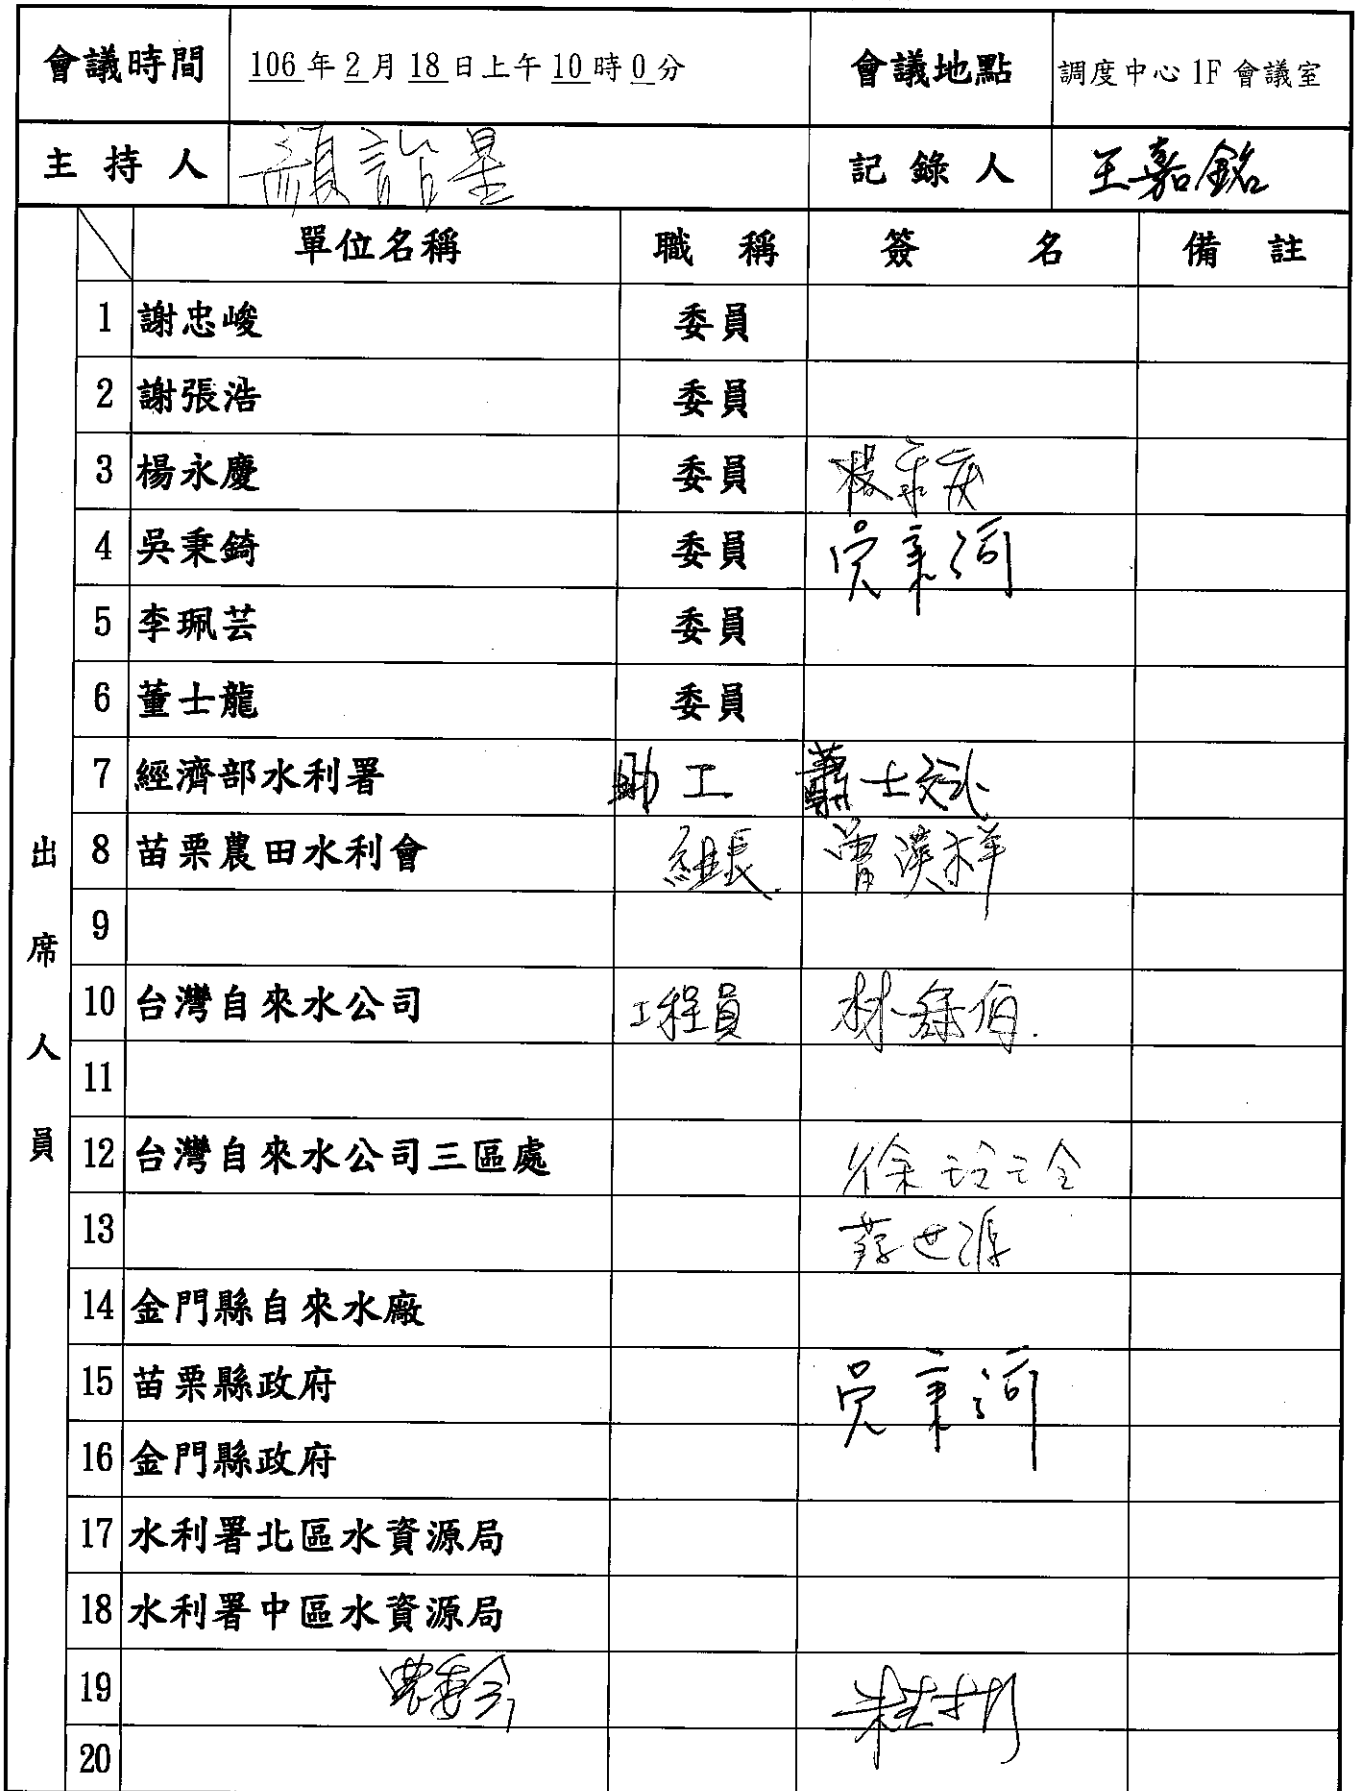 會議時間 106年2月18日上午10時0分 會議地點 調度中心1F會議室
主持人 記錄人 王嘉銘
單位名稱 職稱 簽名 備註
出席人員
1 謝忠峻 委員
2 謝張浩 委員
3 楊永慶 委員 楊永慶
4 吳秉錡 委員 吳秉錡
5 李珮芸 委員
6 董士龍 委員
7 經濟部水利署 助工
8 苗栗農田水利會 組長 曾漢祥
9
10 台灣自來水公司 工程員
11
12 台灣自來水公司三區處 徐玲玲
13
14 金門縣自來水廠
15 苗栗縣政府 吳秉錡
16 金門縣政府
17 水利署北區水資源局
18 水利署中區水資源局
19 農委會
20